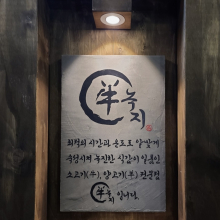 半녹지
최적의 시간과 온도로 알맞게
숙성시켜 녹진한 식감이 일품인
소고기(牛), 양고기(羊) 전문점
半녹지 입니다.